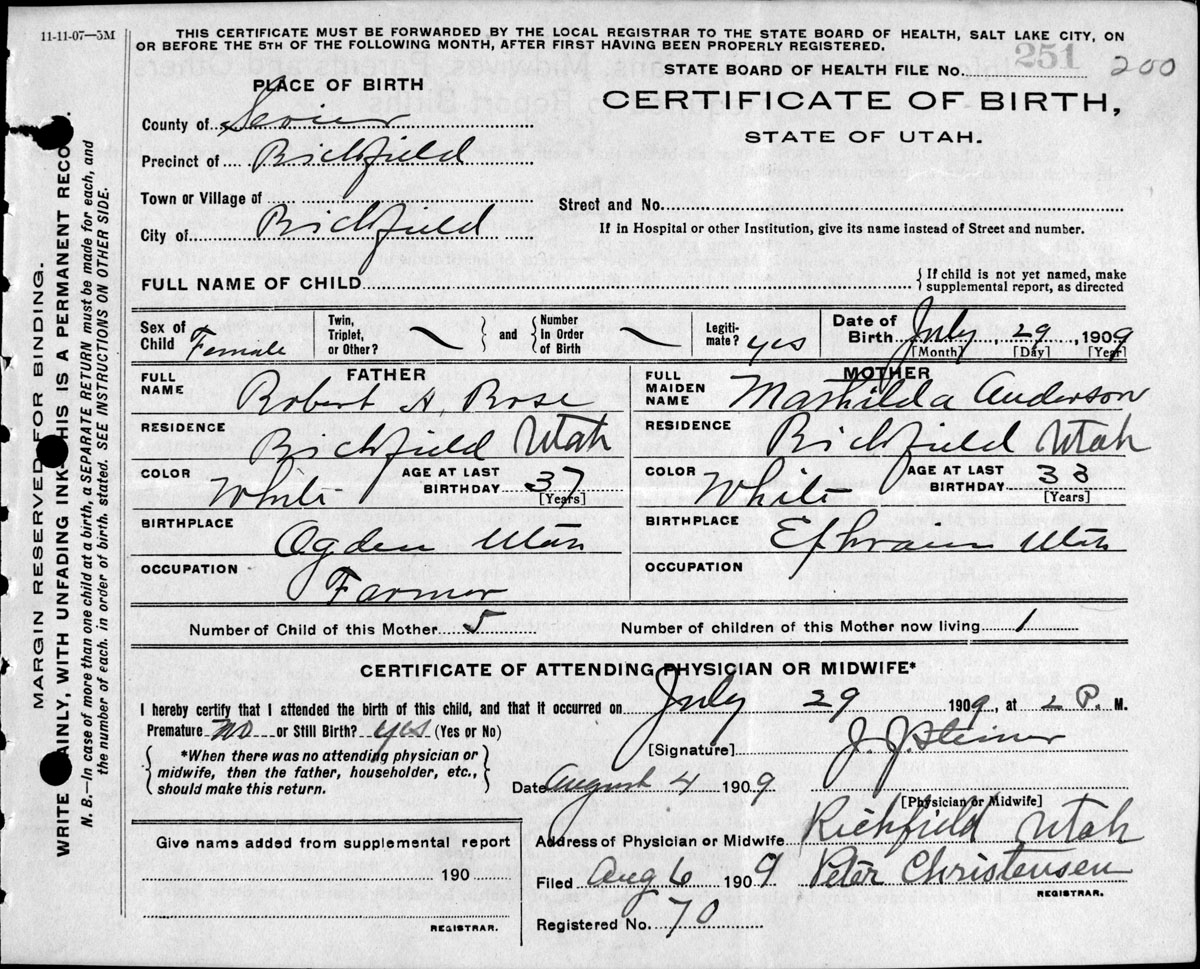 11-11-07—5M
THIS CERTIFICATE MUST BE FORWARDED BY THE LOCAL REGISTRAR TO THE STATE BOARD OF HEALTH, SALT LAKE CITY, ON
OR BEFORE THE 5TH OF THE FOLLOWING MONTH, AFTER FIRST HAVING BEEN PROPERLY REGISTERED.
STATE BOARD OF HEALTH FILE No. 251 200
PLACE OF BIRTH
CERTIFICATE OF BIRTH,
STATE OF UTAH.
County of Sevier
Precinct of Richfield
Town or Village of
Street and No.
City of Richfield
If in Hospital or other Institution, give its name instead of Street and number.
FULL NAME OF CHILD
{If child is not yet named, make
supplemental report, as directed
Sex of Child Female
Twin, Triplet, or Other?
and
Number In Order of Birth
Legiti-mate? yes
Date of Birth July, 29, 1909
[Month] [Day] [Year]
FATHER
FULL NAME Robert H. Rose
RESIDENCE Richfield Utah
COLOR White AGE AT LAST BIRTHDAY 37
[Years]
BIRTHPLACE Ogden Utah
OCCUPATION Farmer
MOTHER
FULL MAIDEN NAME Mathilda Anderson
RESIDENCE Richfield Utah
COLOR White AGE AT LAST BIRTHDAY 33
[Years]
BIRTHPLACE Ephraim Utah
OCCUPATION
Number of Child of this Mother 5 Number of children of this Mother now living 1
CERTIFICATE OF ATTENDING PHYSICIAN OR MIDWIFE*
I hereby certify that I attended the birth of this child, and that it occurred on July 29 1909, at 2 P. M.
Premature no or Still Birth? yes (Yes or No)
*When there was no attending physician or
midwife, then the father, householder, etc.,
should make this return.
[Signature] J. J. Steiner
Date August 4 1909
[Physician or Midwife]
Give name added from supplemental report
190
REGISTRAR.
Address of Physician or Midwife Richfield Utah
Filed Aug 6 1909 Peter Christensen
REGISTRAR.
Registered No. 70
MARGIN RESERVED FOR BINDING.
WRITE AINLY, WITH UNFADING INK— HIS IS A PERMANENT RECO
N. B.—In case of more than one child at a birth, a SEPARATE RETURN must be made for each, and
the number of each. in order of birth, stated. SEE INSTRUCTIONS ON OTHER SIDE.